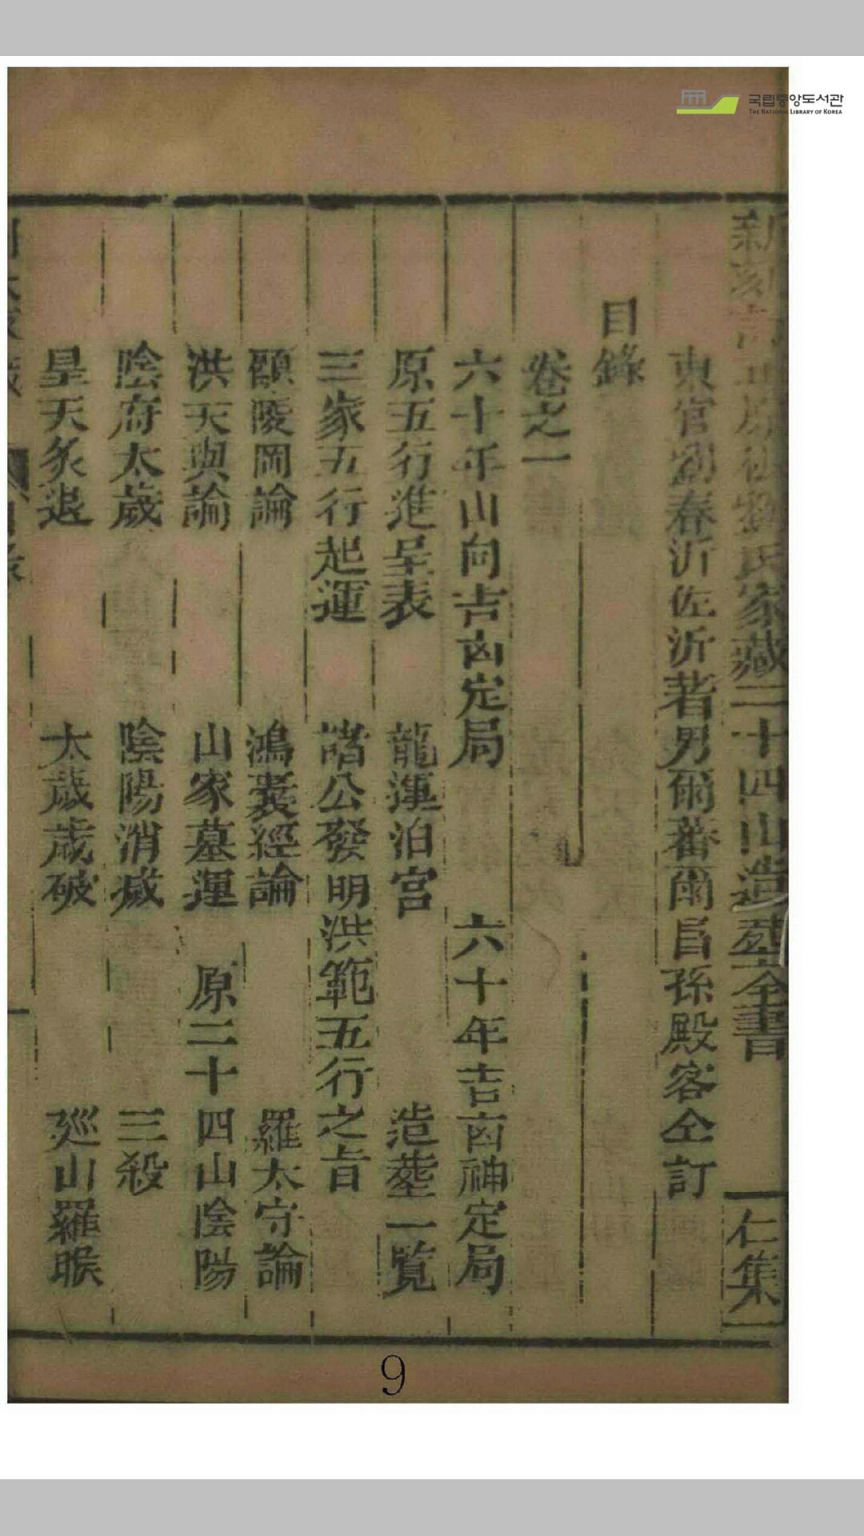 국립중앙도서관
THE NATIONAL LIBRARY OF KOREA
劉氏家藏二十四山造塟全書 仁集
東官劉春沂佐沂著男爾蕃爾昌孫殿客仝訂
目錄
卷之一
六十年山向吉凶定局 六十年吉凶神定局
原五行進呈表 龍運泊宮 造塟一覧
三家五行起運 諸公發明洪範五行之旨
頥陵岡論 鴻囊經論 羅太守論
洪天與論 山家墓運 原二十四山陰陽
陰府太歲 陰陽消滅 三殺
皇天炙退 太歲歲破 廵山羅睺
9